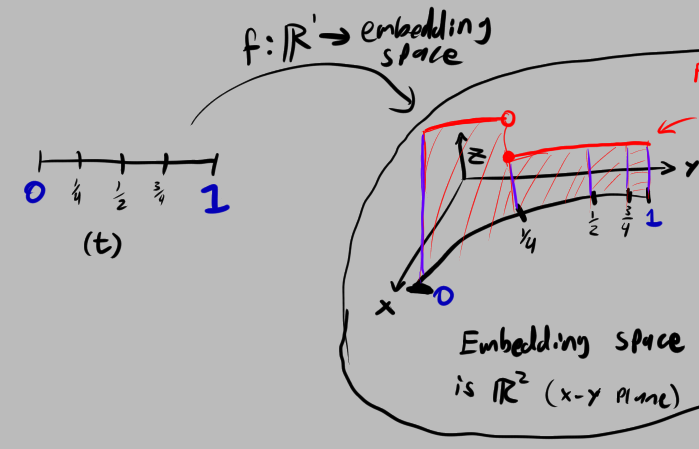 f: ℝ¹ → embedding
space
0 1/4 1/2 3/4 1
(t)
Z
Y
X
0 1/4 1/2 3/4 1
Embedding space
is ℝ² (x-y plane)